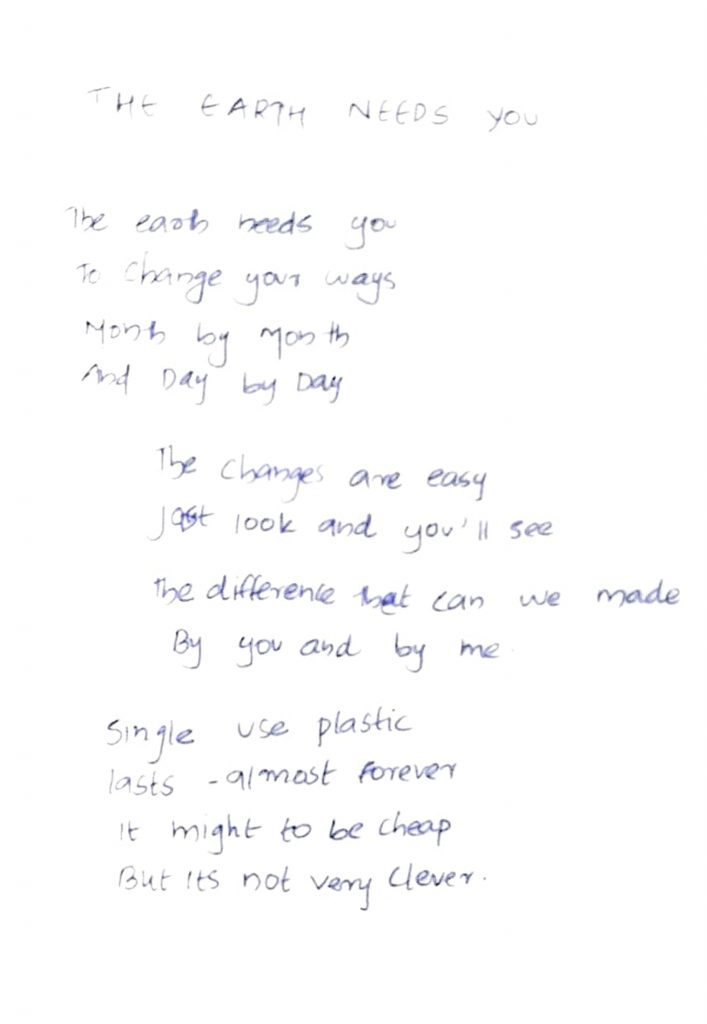 THE EARTH NEEDS YOU
The earth needs you
To Change your ways
Month by Month
And Day by Day
The Changes are easy
Just look and you'll see
The difference that can we made
By you and by me.
Single use plastic
lasts - almost forever
It might to be cheap
But its not very Clever.